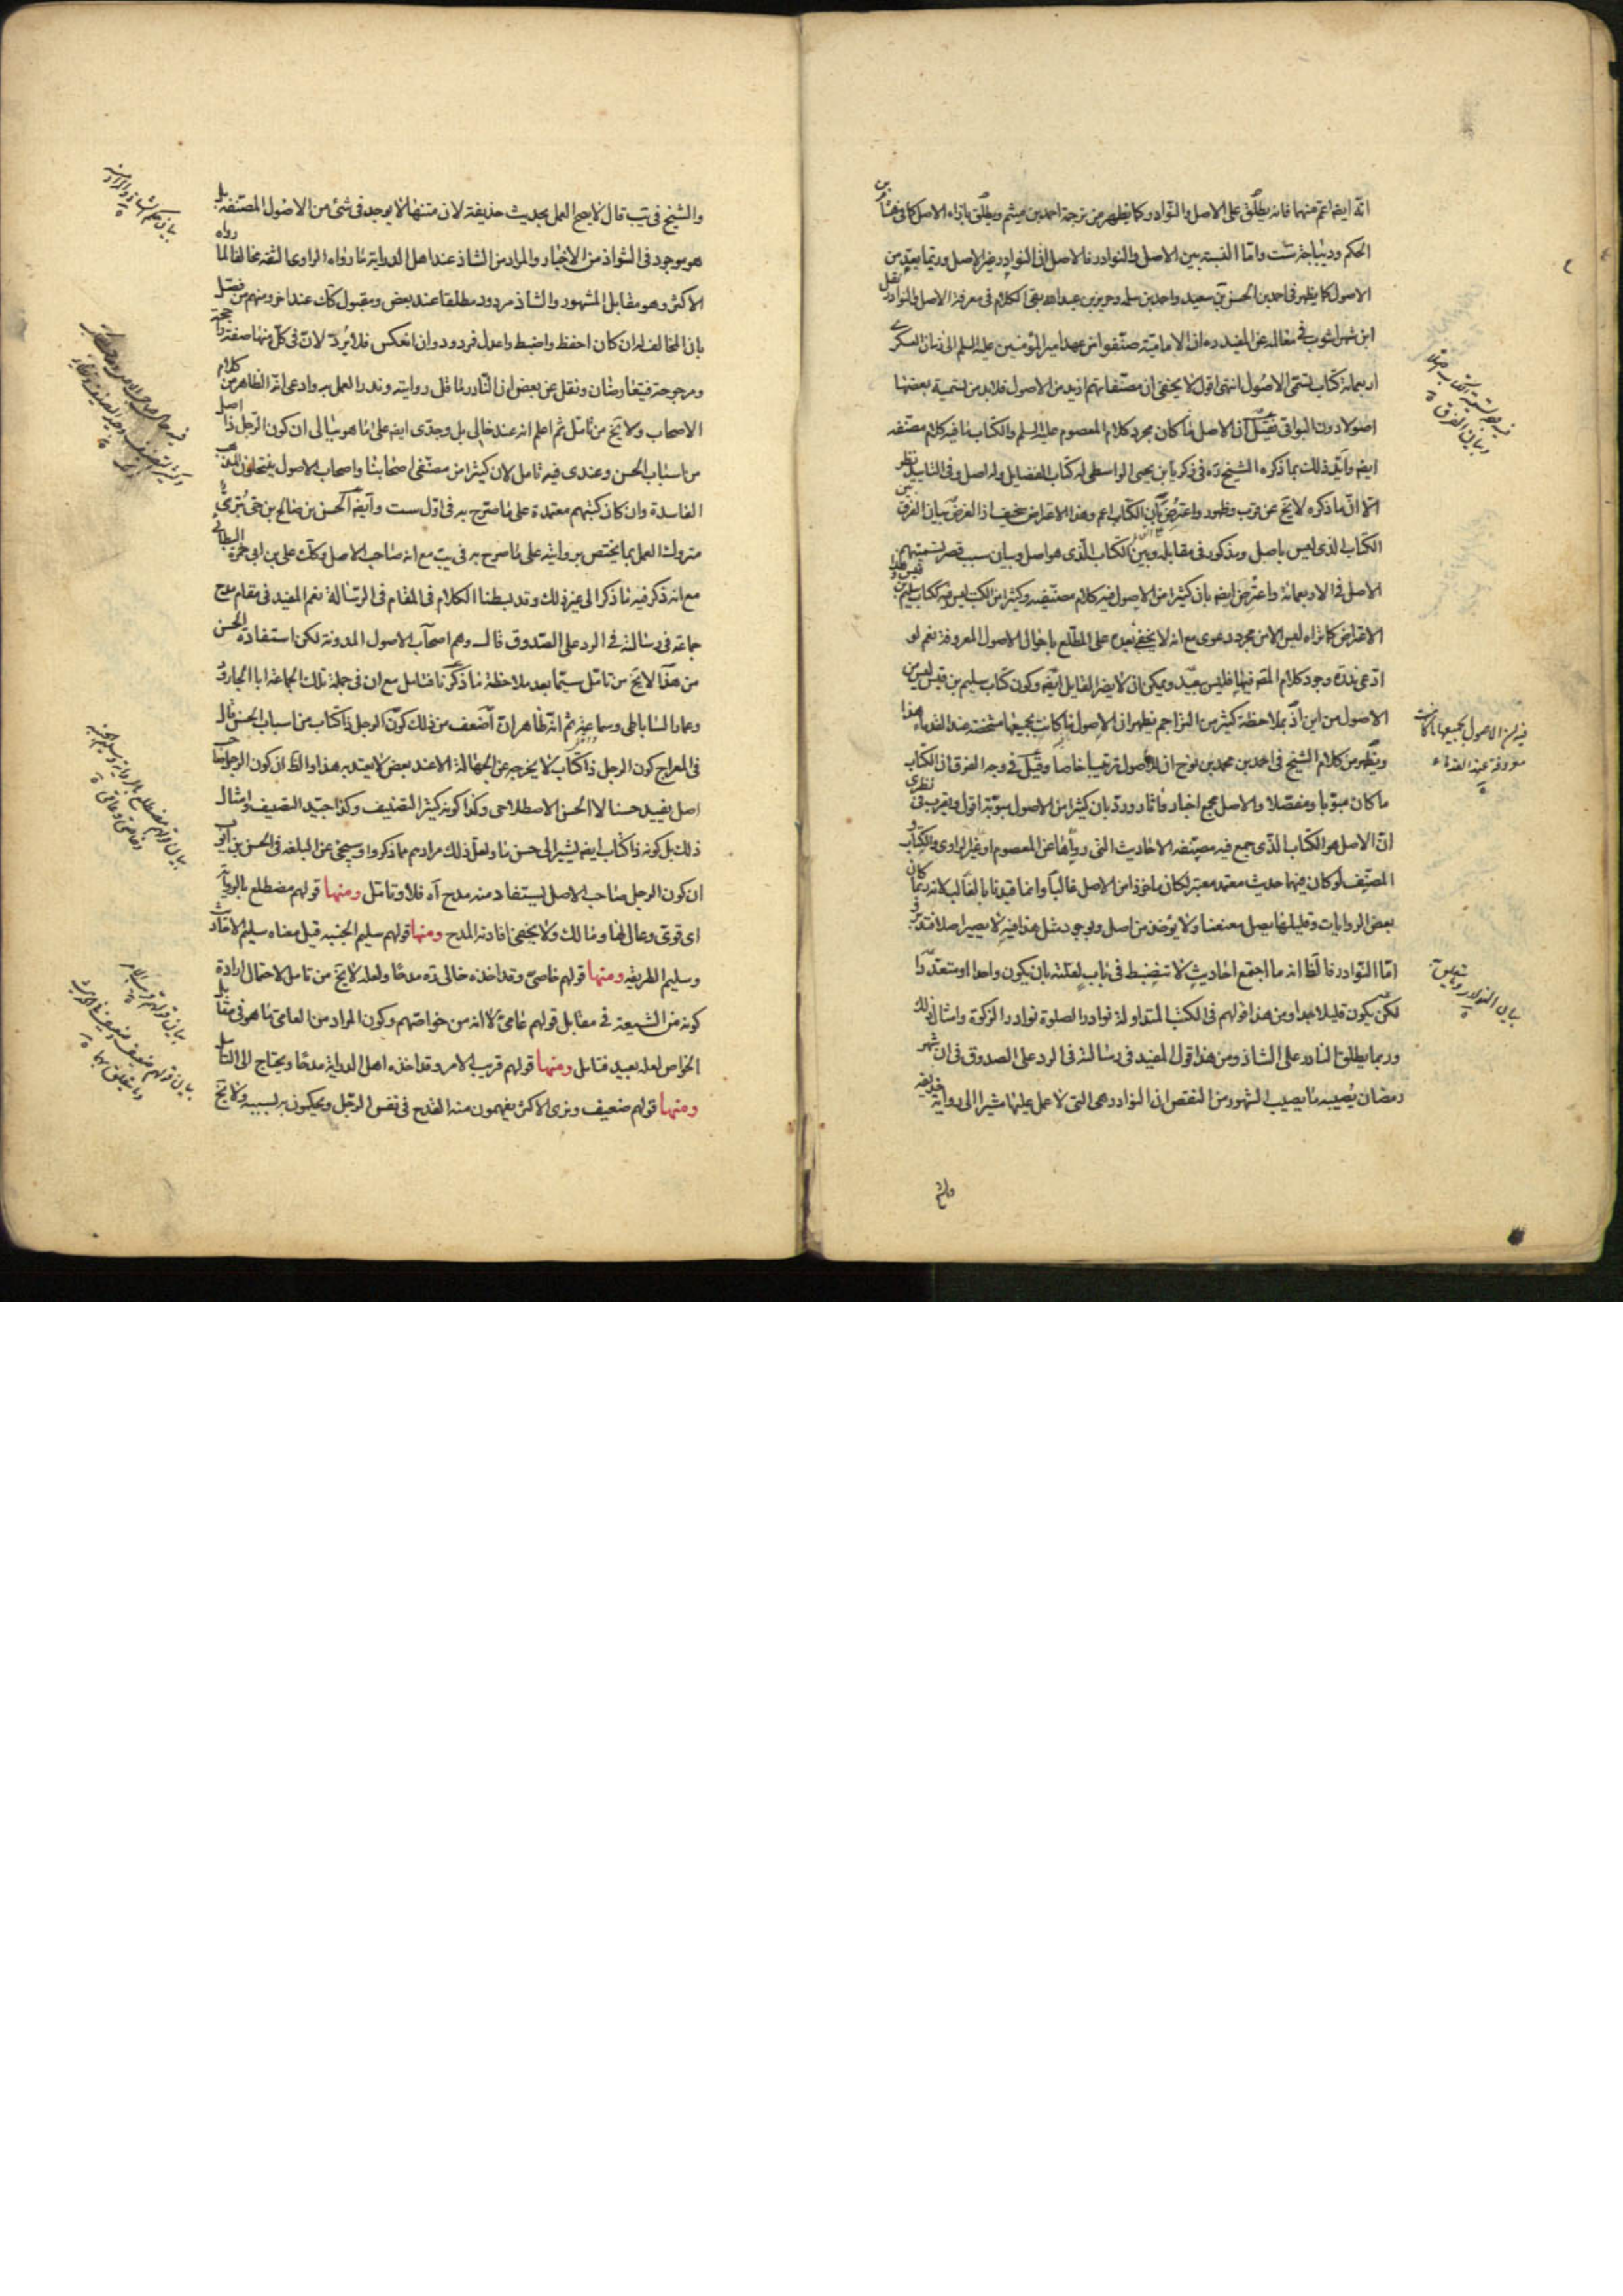 انه ايضا اعم منهما فانه يطلق على الاصل والنوادر كما يظهر من ترجمة احمد بن ميثم ويطلق بازاء الاصل كما فى هشام بن
الحكم وديباجة ست واما النسبة بين الاصل والنوادر فالاصل ان النوادر غير الاصل وربما يعد من
الاصول كما يظهر فى احمد بن الحسن بن سعيد واحمد بن سلمة وحريز بن عبد الله بقى الكلام فى معرفة الاصل والنوادر نقل
ابن شهراشوب فى معالمه عن المفيد ره ان الامامية صنفوا من عهد امير المؤمنين عليه السلم الى زمان العسكرى
اربعمائة كتاب تسمى الاصول انتهى اقول لا يخفى ان مصنفاتهم ازيد من الاصول فلا بد من تسمية بعضها
اصولا دون البواقى فقيل ان الاصل ما كان مجرد كلام المعصوم عليه السلم والكتاب ما فيه كلام مصنفه
ايضا وايد ذلك بما ذكره الشيخ ره فى زكريا بن يحيى الواسطى له كتاب الفضايل وله اصل وفى التاييد نظر
الا ان ما ذكره لا يخ عن قرب وظهور واعترض بان الكتاب اعم وهذا الاعتراض سخيف اذ الغرض بيان الفرق بين
الكتاب الذى ليس باصل ومذكور فى مقابله وبين الكتاب الذى هو اصل وبيان سبب قصر تسميتهم
الاصل فى الاربعمائة واعترض ايضا بان كثيرا من الاصول فيه كلام مصنفيه وكثيرا من الكتب ليس فيه ككتاب سليم بن قيس وهذا
الاعتراض كما تراه ليس الا من مجرد دعوى مع انه لا يخفى بعده على المطلع باحوال الاصول المعروفة نعم لو
ادعى ندرة وجود كلام المصنف فيها فليس ببعيد ويمكن ان لا يضر القايل ايضا وكون كتاب سليم بن قيس ليس من
الاصول من اين اذ بملاحظة كثير من التراجم يظهر ان الاصول ما كانت بجميعها مشخصة عند القدماء هذا
ويظهر من كلام الشيخ فى احمد بن محمد بن نوح ان للاصول ترتيبا خاصا وقيل فى وجه الفرق ان الكتاب
ما كان مبوبا ومفصلا والاصل مجمع اخبار واثار ورد بان كثيرا من الاصول مبوبة اقول ويقرب فى نظرى
ان الاصل هو الكتاب الذى جمع فيه مصنفه الاحاديث التى رواها عن المعصوم او عن الراوى والكتاب و
المصنف لو كان فيهما حديث معتمد معتبر لكان ماخوذا من الاصل غالبا وانما قيدنا بالغالب لانه ربما كان
بعض الروايات وقليلها يصل معنعنا ولا يؤخذ من اصل وبوجود مثل هذا فيه لا يصير اصلا فتدبر
اما النوادر فالظ انه ما اجتمع احاديث لا تنضبط فى باب لقلته بان يكون واحدا او متعددا
لكن يكون قليلا جدا ومن هذا قولهم فى الكتب المتداولة نوادر الصلوة نوادر الزكوة وامثال ذلك
وربما يطلق النادر على الشاذ ومن هذا قول المفيد فى رسالته فى الرد على الصدوق فى ان شهر
رمضان يصيبه ما يصيب الشهور من النقص ان النوادر هى التى لا عمل عليها مشيرا الى رواية حذيفة
فيه ان الاصول بجميعها ما كانت
معروفة عند القدماء
بيان النوادر
والشيخ
والشيخ فى يب قال لا يصح العمل بحديث حذيفة لان متنها لا يوجد فى شئ من الاصول المصنفة بل
هو موجود فى الشواذ من الاخبار والمراد من الشاذ عند اهل الدراية ما رواه الراوى الثقة مخالفا لما رواه
الاكثر وهو مقابل المشهور والشاذ مردود مطلقا عند بعض ومقبول كك عند اخر ومنهم من فصل
بان المخالف له ان كان احفظ واضبط واعدل فمردود وان انعكس فلا يرد لان فى كل منهما صفة راجحة
ومرجوحة فيتعارضان ونقل عن بعض ان النادر ما قل روايته وندر العمل به وادعى انه الظاهر من كلام
الاصحاب ولا يخ من تامل ثم اعلم انه عند خالى بل وجدى ايضا على ما هو ببالى ان كون الرجل ذا اصل
من اسباب الحسن وعندى فيه تامل لان كثيرا من مصنفى اصحابنا واصحاب الاصول ينتحلون المذاهب
الفاسدة وان كان كتبهم معتمدة على ما صرح به فى اول ست وايضا الحسن بن صالح بن حى بترى
متروك العمل بما يختص بروايته على ما صرح به فى يب مع انه صاحب الاصل وكك على بن ابى حمزة البطائنى
مع انه ذكر فيه ما ذكر الى غير ذلك وقد بسطنا الكلام فى المقام فى الرسالة نعم المفيد فى مقام مدح
جماعة فى رسالته فى الرد على الصدوق قال وهم اصحاب الاصول المدونة لكن استفادة الحسن
من هذا لا يخ من تامل سيما بعد ملاحظة ما ذكرنا فتامل مع ان فى جملة تلك الجماعة ابا الجارود
وعمار الساباطى وسماعة ثم انه ظاهر ان اضعف من ذلك كون الرجل ذا كتاب من اسباب الحسن قال
فى المعراج كون الرجل ذا كتاب لا يخرجه عن الجهالة الا عند بعض لا يعتد به هذا والظ ان كون الرجل صاحب
اصل يفيد حسنا لا الحسن الاصطلاحى وكذا كونه كثير التصنيف وكذا جيد التصنيف وامثال
ذلك بل كونه ذا كتاب ايضا يشير الى حسن ما ولعل ذلك مرادهم مما ذكروا وسيجئ عن البلغة فى الحسن بن ايوب
ان كون الرجل صاحب الاصل يستفاد منه مدح اه فلاوتامل ومنها قولهم مضطلع بالرواية
اى قوى وعال لها ومالك ولا يخفى افادته المدح ومنها قولهم سليم الجنبة قيل معناه سليم الاحاديث
وسليم الطريقة ومنها قولهم خاصى وقد اخذه خالى ره مدحا ولعله لا يخ من تامل لاحتمال ارادة
كونه من الشيعة فى مقابل قولهم عامى لا انه من خواصهم وكون المراد من العامى ما هو فى مقابل
الخواص لعله بعيد فتامل ومنها قولهم قريب الامر وقد اخذه اهل الدراية مدحا ويحتاج الى التامل
ومنها قولهم ضعيف ونرى الاكثر يفهمون منه القدح فى نفس الرجل ويحكمون به بسببه ولا يخ